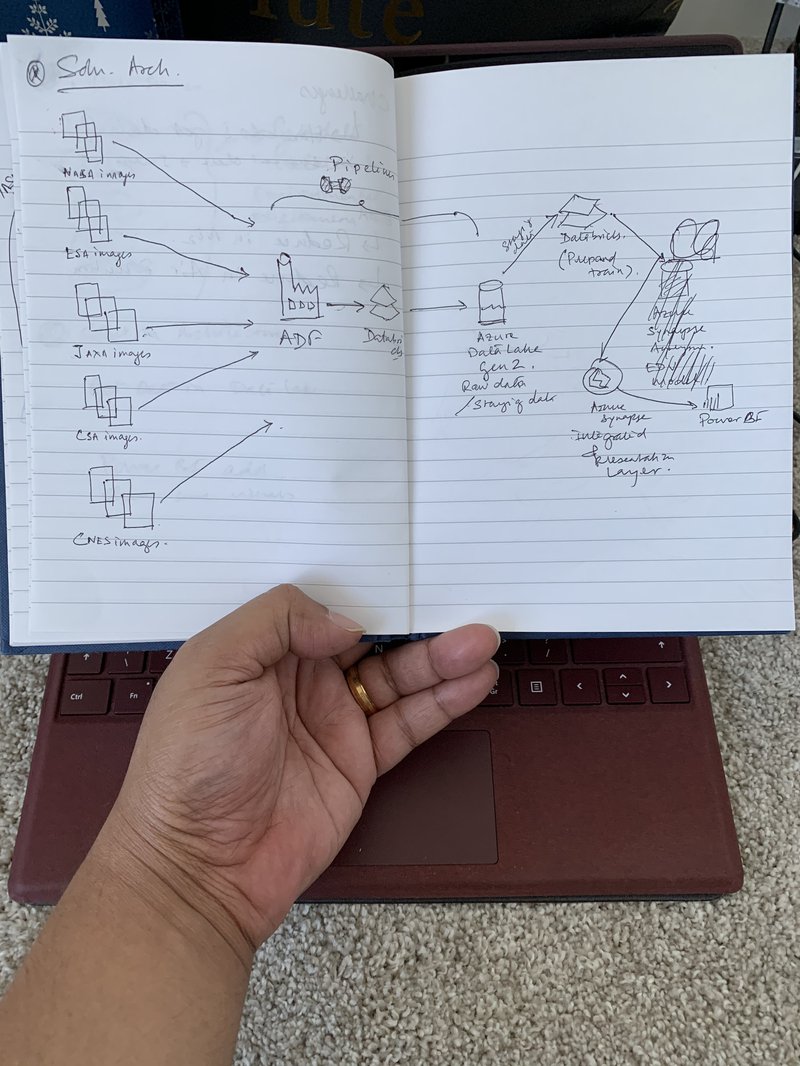 Soln. Arch.
NASA images
ESA images
JAXA images
CSA images.
CNES images.
Pipelines
ADF
Databricks
Azure
Data Lake
Gen 2.
Raw data
/Staging data
Staging data
Databricks.
(Prep and
train).
Azure
Synapse
Azure
Synapse
integrated
& Presentation
Layer.
Power BI
Ctrl
Fn
Z
N
Gr